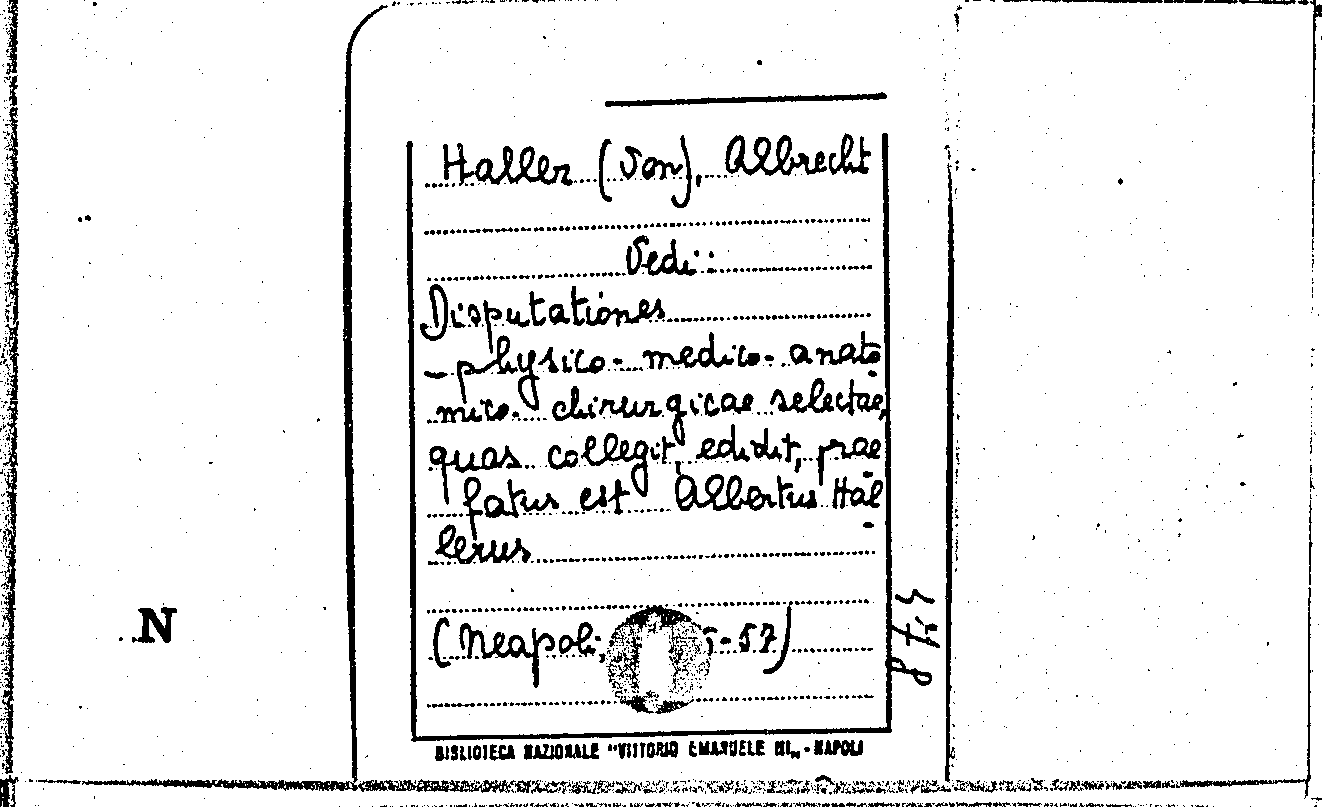 Haller (von), Albrecht
Vedi:
Disputationes
physico-medico-anato
mico-chirurgicae selectae,
quas collegit, edidit, prae
fatus est Albertus Hal
lerus
(Neapoli, 5-57)
N
BIBLIOTECA NAZIONALE "VITTORIO EMANUELE III„ - NAPOLI